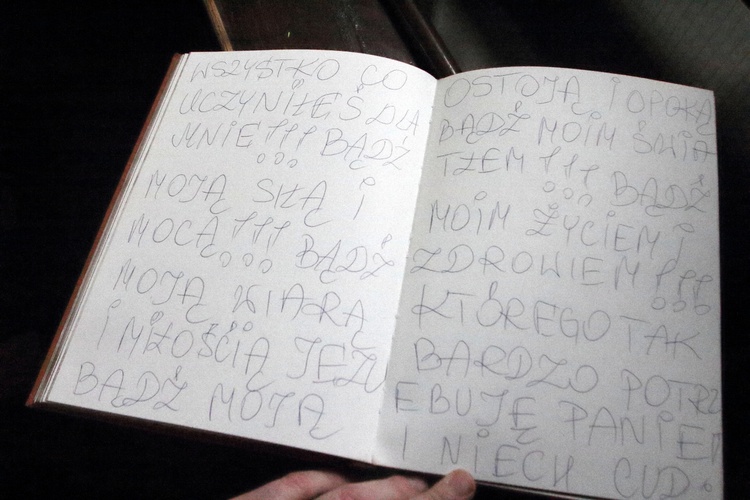 WSZYSTKO CO
UCZYNIŁEŚ DLA
MNIE!!! BĄDŹ
MOJĄ SIŁĄ i
MOCĄ!!! BĄDŹ
MOJĄ WIARĄ
i MIŁOŚCIĄ JEZU
BĄDŹ MOJĄ
OSTOJĄ i OPOKĄ
BĄDŹ MOIM ŚWIA
TŁEM!!! BĄDŹ
MOIM ŻYCIEM i
ZDROWIEM!!!
KTÓREGO TAK
BARDZO POTRZ
EBUJĘ PANIE!
I NIECH CUD